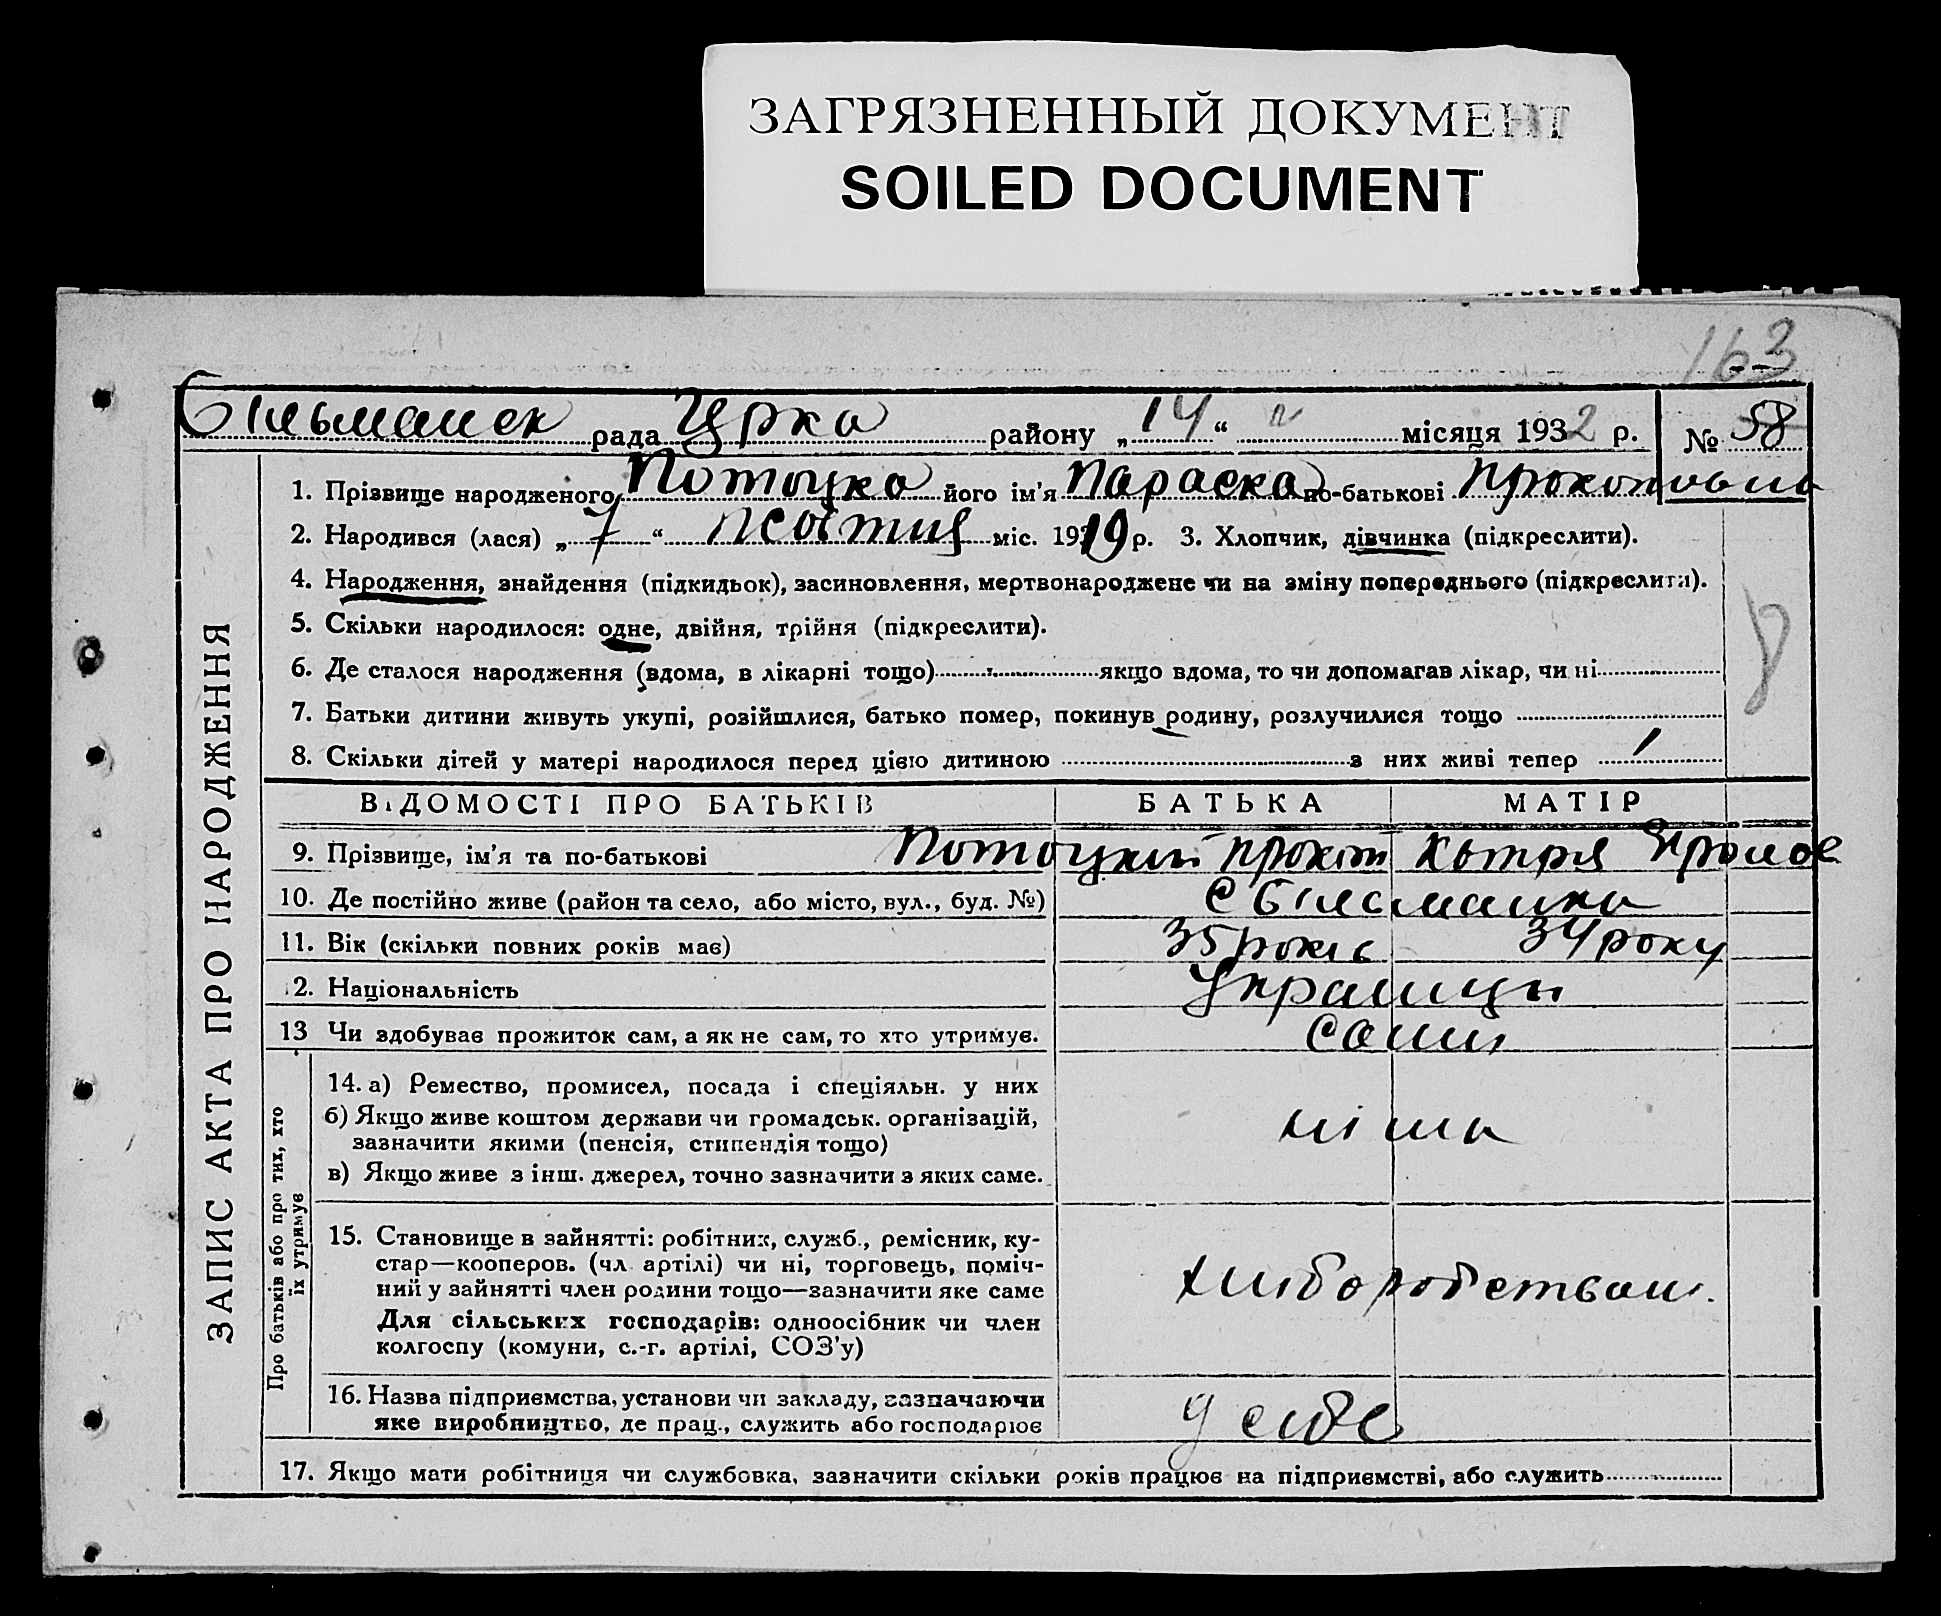 ЗАГРЯЗНЕННЫЙ ДОКУМЕНТ
SOILED DOCUMENT
163
рада района району „ 14 “ місяця 1932 р. № 58
1. Прізвище народженого Потоцка його ім'я Параска по-батькові
2. Народився (лася) „ 7 “ жовтня міс. 1919 р. 3. Хлопчик, дівчинка (підкреслити).
4. Народження, знайдення (підкидьок), засиновлення, мертвонароджене чи на зміну попереднього (підкреслити).
5. Скільки народилося: одне, двійня, трійня (підкреслити).
6. Де сталося народження (вдома, в лікарні тощо) якщо вдома, то чи допомагав лікар, чи ні
7. Батьки дитини живуть укупі, розійшлися, батько помер, покинув родину, розлучилися тощо
8. Скільки дітей у матері народилося перед цією дитиною з них живі тепер
ЗАПИС АКТА ПРО НАРОДЖЕННЯ
ВІДОМОСТІ ПРО БАТЬКІВ БАТЬКА МАТІР
9. Прізвище, ім'я та по-батькові Потоцкий
10. Де постійно живе (район та село, або місто, вул., буд. №)
11. Вік (скільки повних років має) 35 років 34 року
12. Національність Украинци
13 Чи здобуває прожиток сам, а як не сам, то хто утримує. сами
Про батьків або про тих, хто
їх утримує
14. а) Ремество, промисел, посада і спеціяльн. у них
б) Якщо живе коштом держави чи громадськ. організацій,
зазначити якими (пенсія, стипендія тощо)
в) Якщо живе з інш. джерел, точно зазначити з яких саме.
німа
15. Становище в зайнятті: робітник, служб., ремісник, ку-
стар—кооперов. (чл. артілі) чи ні, торговець, поміч-
ний у зайнятті член родини тощо—зазначити яке саме
Для сільських господарів: одноосібник чи член
колгоспу (комуни, с.-г. артілі, СОЗ'у)
16. Назва підприємства, установи чи закладу, зазначаючи
яке виробництво, де прац., служить або господарює
у себе
17. Якщо мати робітниця чи службовка, зазначити скільки років працює на підприємстві, або служить